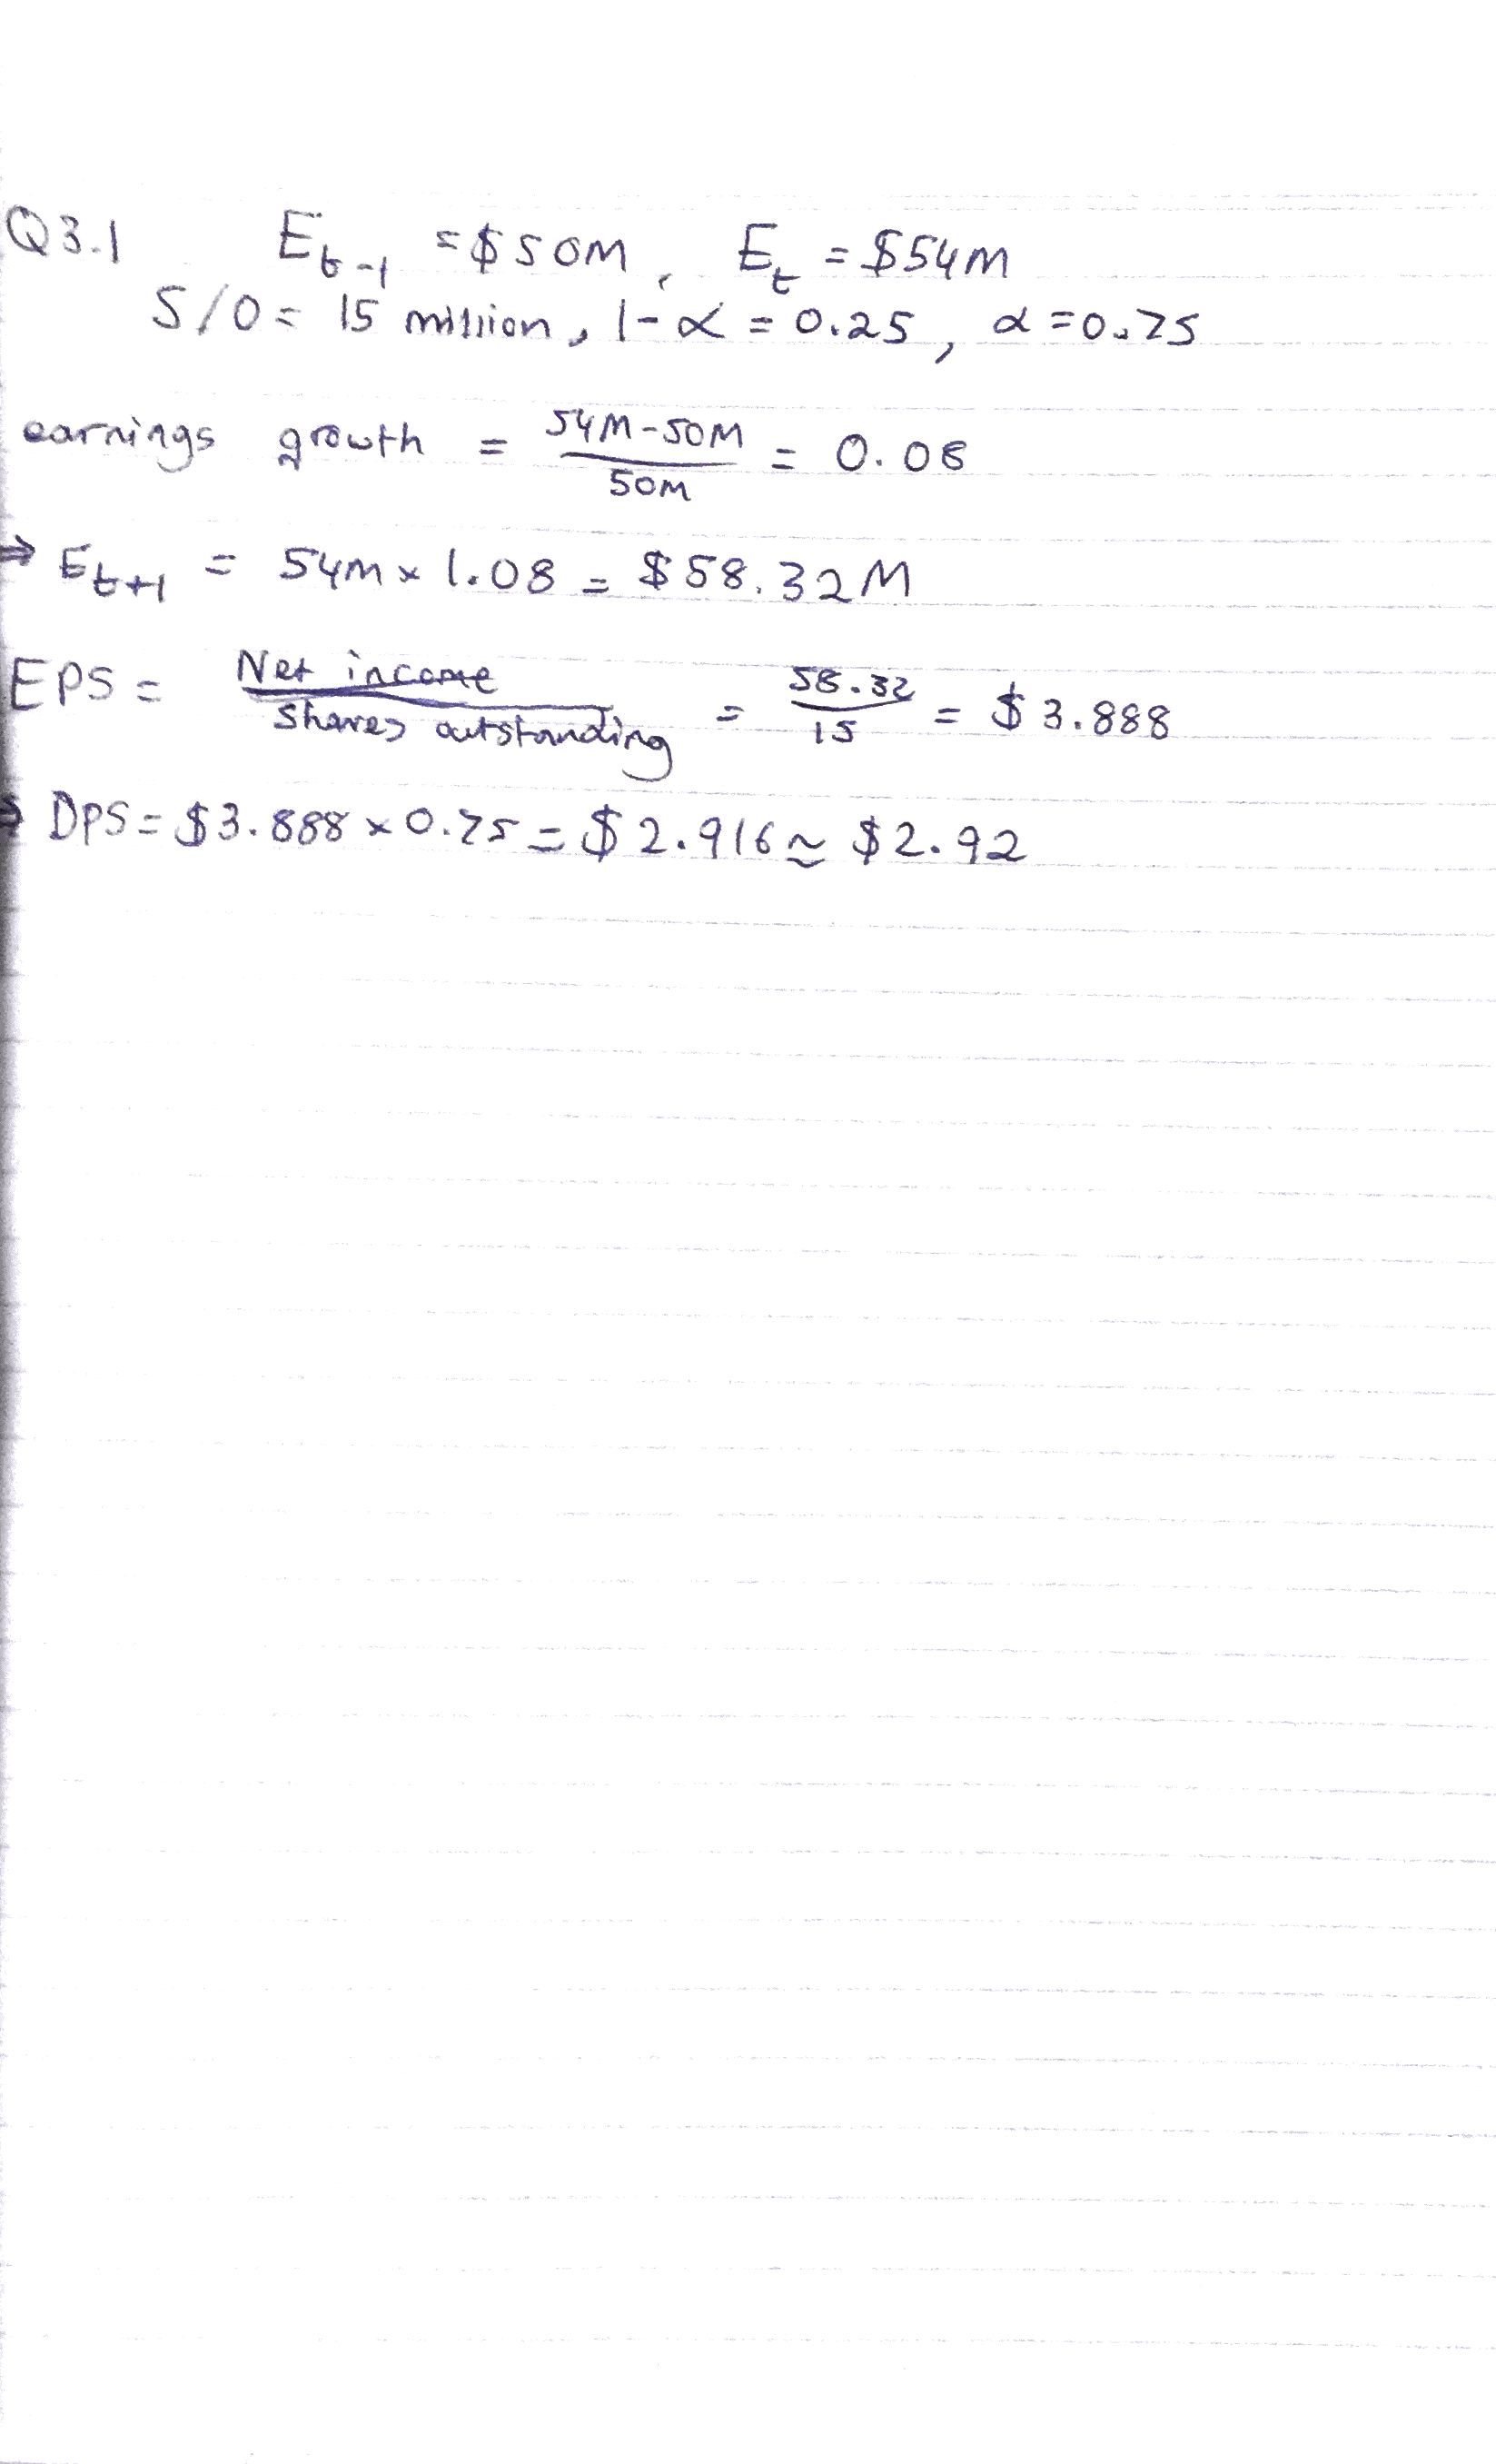 Q3.1 E_{t-1} = $50M, E_t = $54M
S/O = 15 million, 1-α = 0.25, α = 0.75
earnings growth = \frac{54M-50M}{50M} = 0.08
⇒ E_{t+1} = 54M × 1.08 = $58.32M
EPS = \frac{Net income}{Shares outstanding} = \frac{58.32}{15} = $3.888
⇒ DPS = $3.888 × 0.75 = $2.916 ≈ $2.92